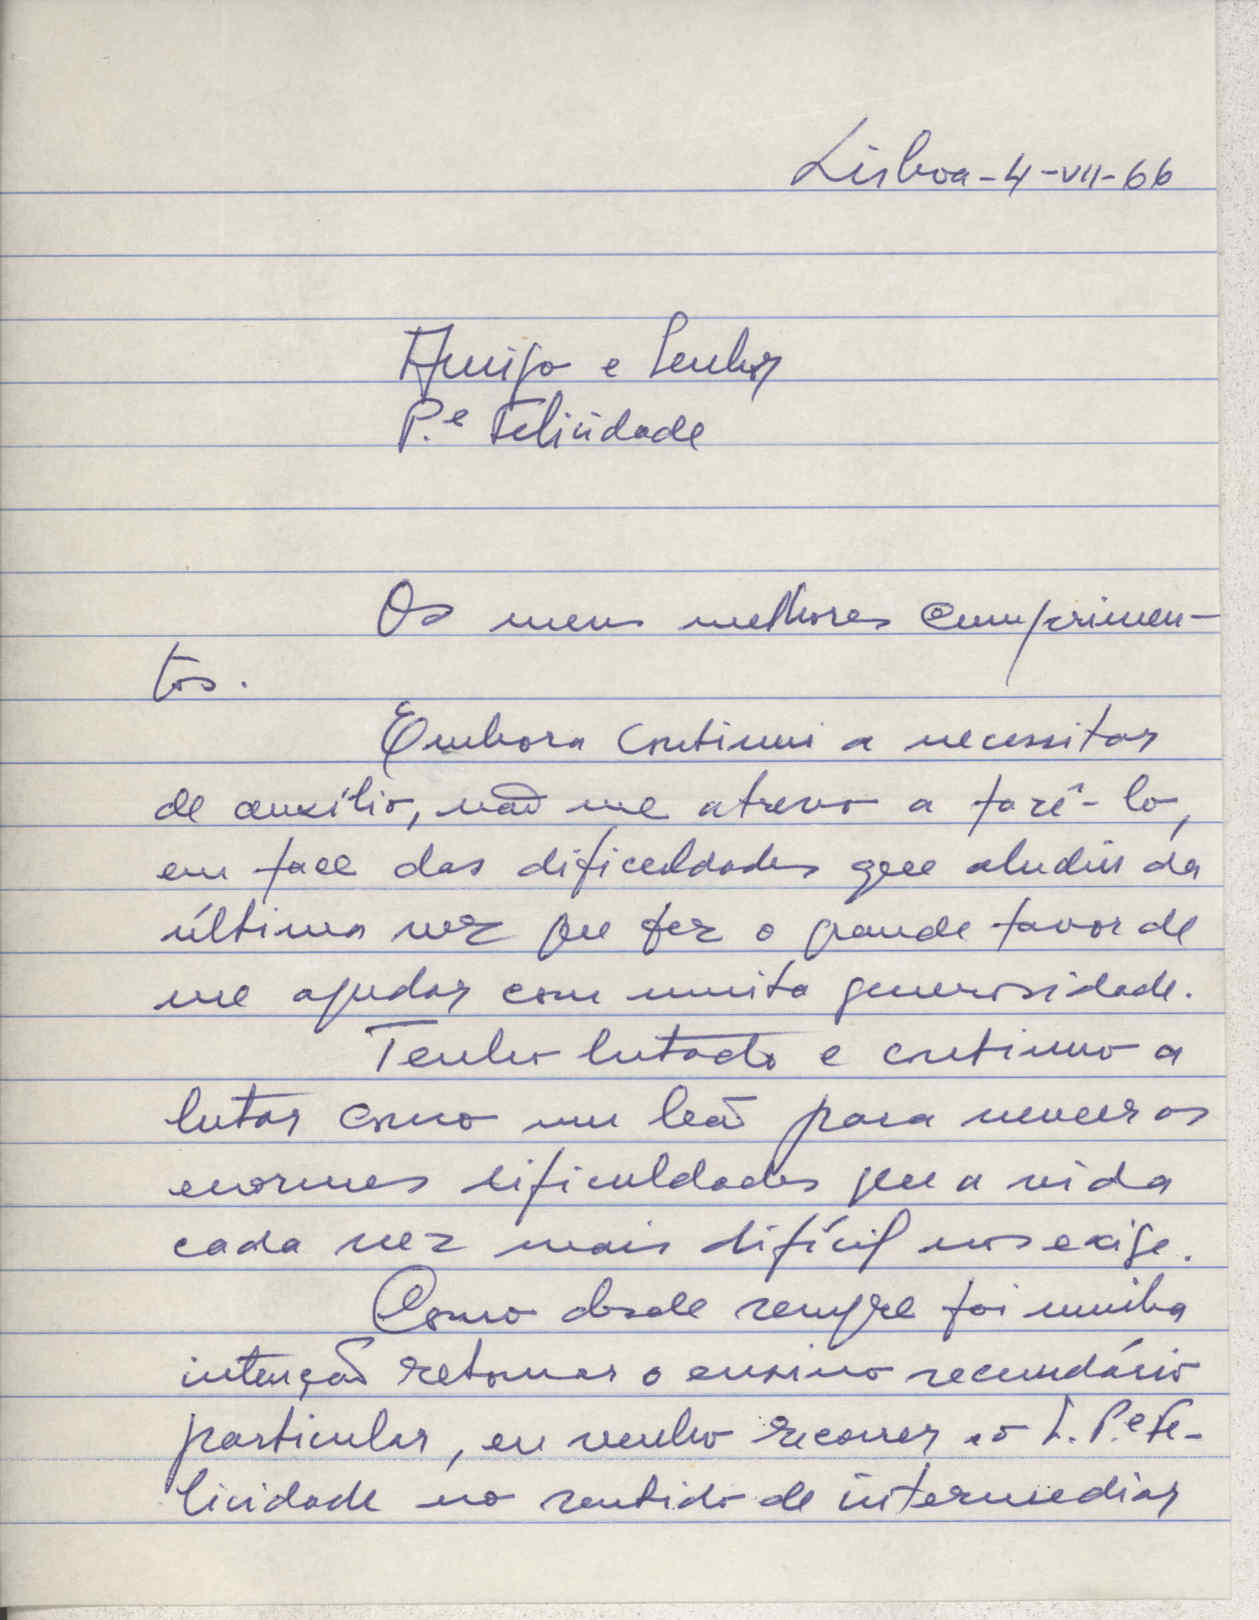 Lisboa - 4 - VII - 66
Amigo e Senhor
P.e Felicidade
Os meus melhores cumprimen-
tos.
Embora continui a necessitar
de auxílio, não me atrevo a fazê-lo,
em face das dificuldades que aludiu da
última vez que fez o grande favor de
me ajudar com muita generosidade.
Tenho lutado e continuo a
lutar como um leão para vencer as
enormes dificuldades que a vida
cada vez mais difícil nos exige.
Como desde sempre foi minha
intenção retomar o ensino secundário
particular, eu venho recorrer ao S. P.e Fe-
licidade no sentido de intermediar